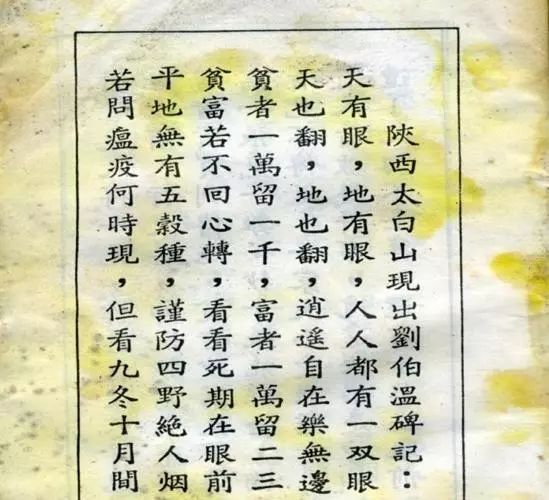 陝西太白山現出劉伯溫碑記：
天有眼，地有眼，人人都有一双眼
天也翻，地也翻，逍遥自在樂無邊
貧者一萬留一千，富者一萬留二三
貧富若不回心轉，看看死期在眼前
平地無有五穀種，謹防四野絕人烟
若問瘟疫何時現，但看九冬十月間